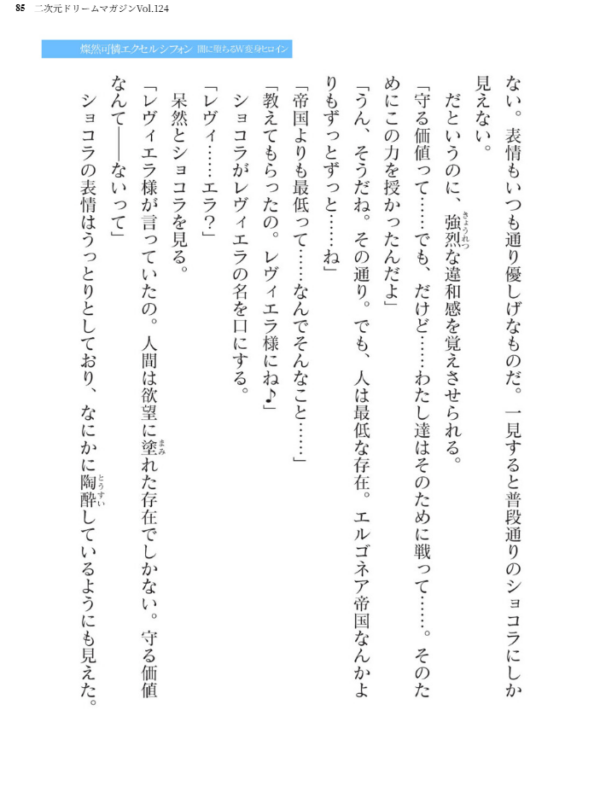 85 二次元ドリームマガジンVol.124
燦然可憐エクセルシフォン 闇に堕ちるW変身ヒロイン
ない。表情もいつも通り優しげなものだ。一見すると普段通りのショコラにしか
見えない。
だというのに、強烈な違和感を覚えさせられる。
きょうれつ
「守る価値って……でも、だけど……わたし達はそのために戦って……。そのた
めにこの力を授かったんだよ」
「うん、そうだね。その通り。でも、人は最低な存在。エルゴネア帝国なんかよ
りもずっとずっと……ね」
「帝国よりも最低って……なんでそんなこと……」
「教えてもらったの。レヴィエラ様にね♪」
ショコラがレヴィエラの名を口にする。
「レヴィ……エラ？」
呆然とショコラを見る。
「レヴィエラ様が言っていたの。人間は欲望に塗れた存在でしかない。守る価値
まみ
なんて――ないって」
ショコラの表情はうっとりとしており、なにかに陶酔しているようにも見えた。
とうすい